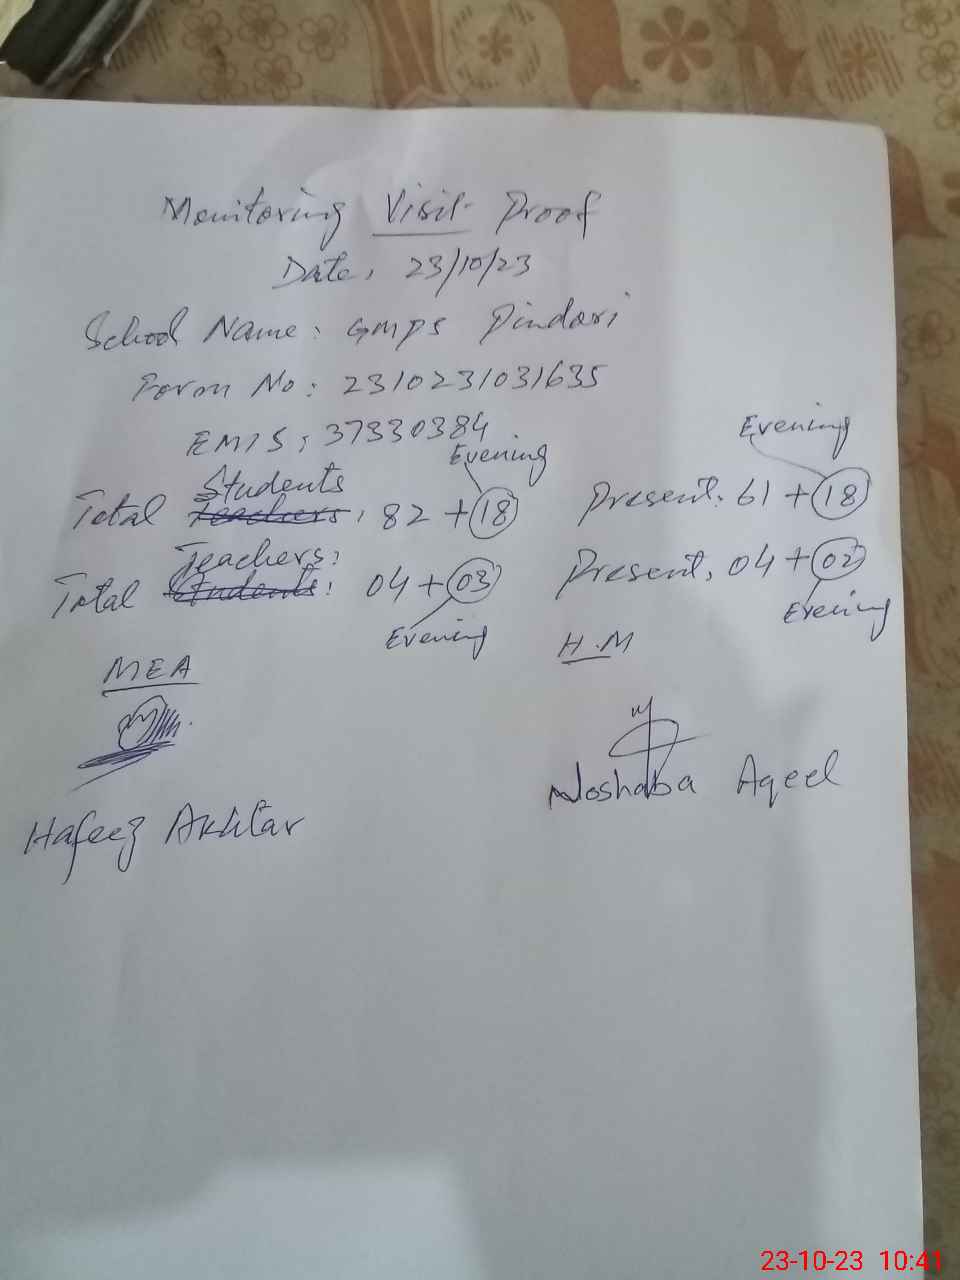 Monitoring Visit Proof
Date: 23/10/23
School Name: GMPS Pindori
Form No: 2310231031635
EMIS: 37330384
Evening Evening
Students
Total Teachers: 82 + 18 Present: 61 + 18
Teachers:
Total Students: 04 + 03 Present: 04 + 02
Evening Evening
MEA H.M
Hafeez Akhtar Noshaba Aqeel
23-10-23 10:41